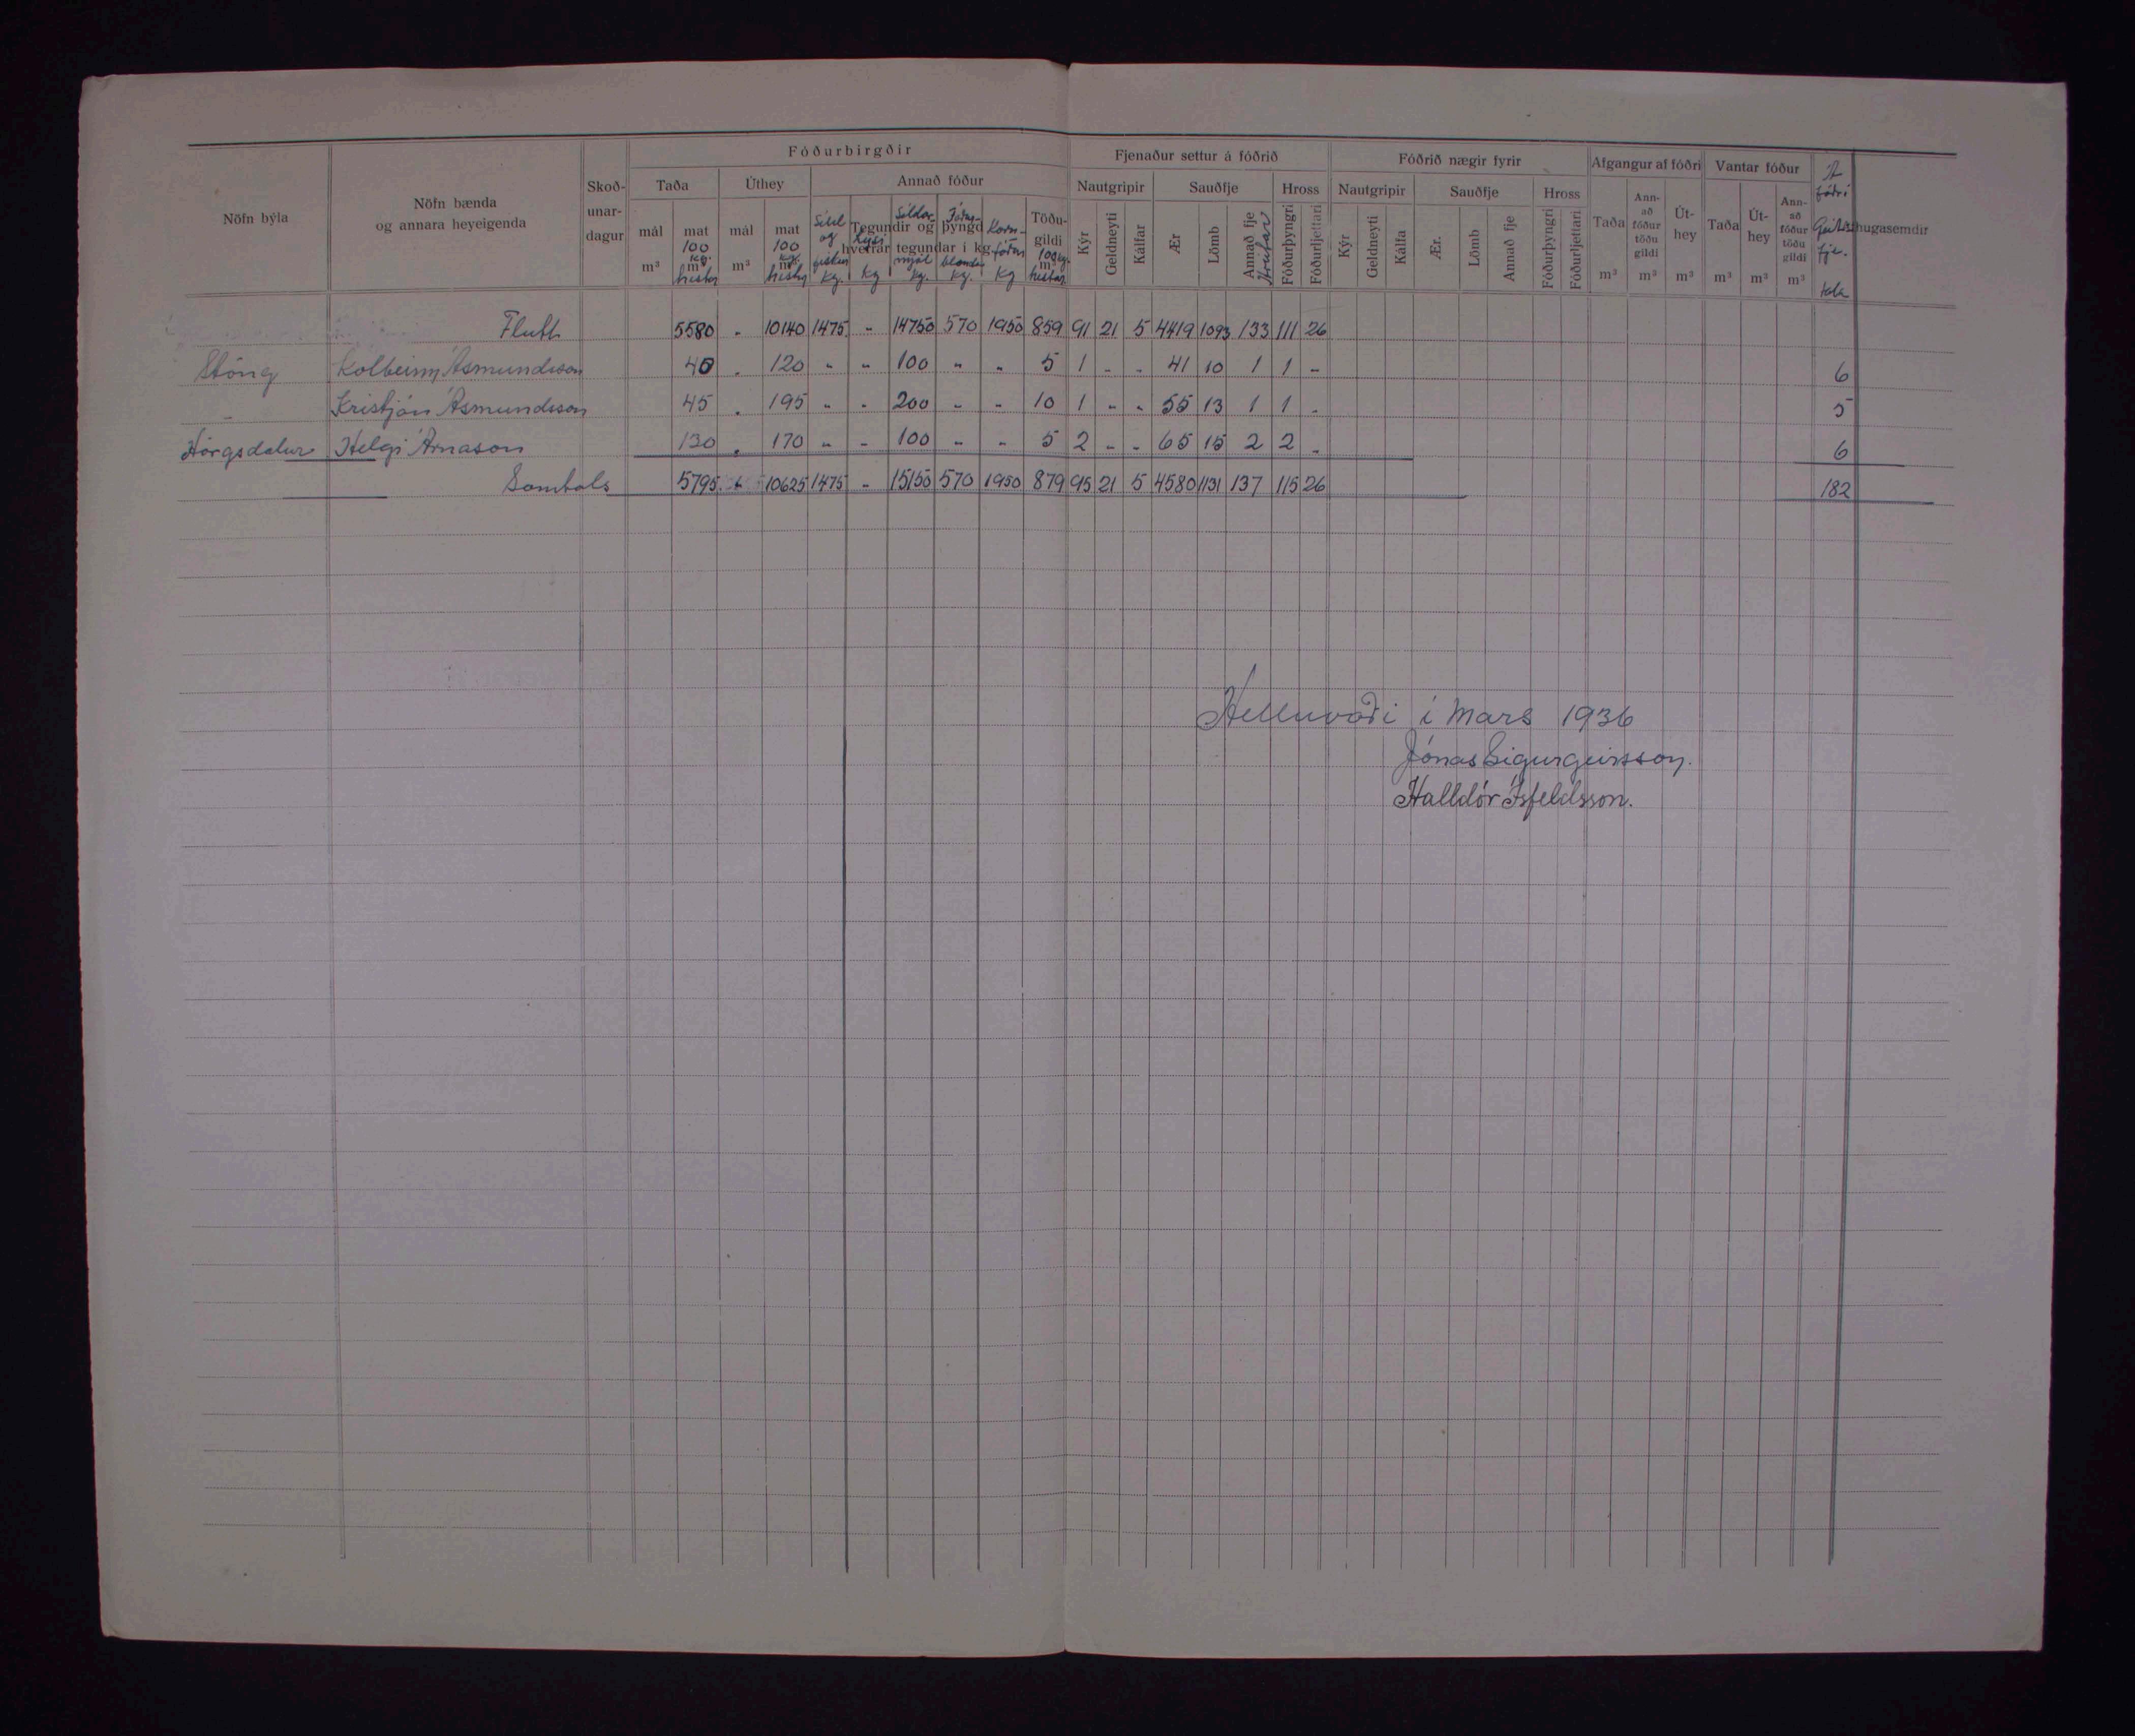 Fóðurbirgðir Fjenaður settur á fóðrið Fóðrið nægir fyrir Afgangur af fóðri Vantar fóður Á fóðri
Nöfn býla Nöfn bænda og annara heyeigenda Skoð-unar-dagur Taða Úthey Annað fóður Nautgripir Sauðfje Hross Nautgripir Sauðfje Hross
Tegundir og þyngd hverrar tegundar í kg.
mál m³ mat 100 kg. m³ hestar mál m³ mat 100 kg. m³ hestar Síld og kg. Lýsi kg Síldar-mjöl kg. Fóður-blanda kg. Korn-fóður kg Töðu-gildi 100 kg. m³ hestar Kýr Geldneyti Kálfar Ær Lömb Annað fje Hrútar Fóðurþyngri Fóðurljettari Kýr Geldneyti Kálfa Ær. Lömb Annað fje Fóðurþyngri Fóðurljettari Taða m³ Ann-að fóður töðu gildi m³ Út-hey m³ Taða m³ Út-hey m³ Ann-að fóður töðu gildi m³ fje. tala hugasemdir
Flutt 5580 " 10140 1475 " 14750 570 1950 859 91 21 5 4419 1093 133 111 26
Stöng Kolbeinn Ásmundsson 40 " 120 " " 100 " " 5 1 " " 41 10 1 1 " 6
" Kristján Ásmundsson 45 " 195 " " 200 " " 10 1 " " 55 13 1 1 " 5
Hörgsdalur Helgi Árnason 130 " 170 " " 100 " " 5 2 " " 65 15 2 2 " 6
Samtals 5795 " 10625 1475 " 15150 570 1950 879 95 21 5 4580 1131 137 115 26 182
Helluvaði í Mars 1936
Jónas Sigurgeirsson.
Halldór Ísfeldsson.